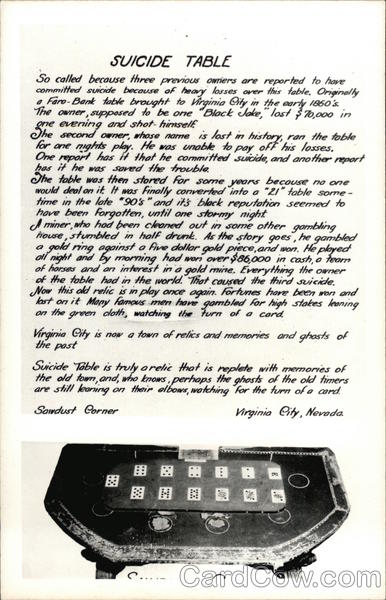 SUICIDE TABLE
So called because three previous owners are reported to have
committed suicide because of heavy losses over this table. Originally
a Faro-Bank table brought to Virginia City in the early 1860's.
The owner, supposed to be one "Black Jake," lost $70,000 in
one evening and shot himself.
The second owner, whose name is lost in history, ran the table
for one nights play. He was unable to pay off his losses.
One report has it that he committed suicide, and another report
has it he was saved the trouble.
The table was then stored for some years because no one
would deal on it. It was finally converted into a "21" table some-
time in the late "90's" and it's black reputation seemed to
have been forgotten, until one stormy night.
A miner, who had been cleaned out in some other gambling
house, stumbled in half drunk. As the story goes, he gambled
a gold ring against a five dollar gold piece, and won. He played
all night and by morning had won over $86,000 in cash, a team
of horses and an interest in a gold mine. Everything the owner
of the table had in the world. That caused the third suicide.
Now this old relic is in play once again. Fortunes have been won and
lost on it. Many famous men have gambled for high stakes leaning
on the green cloth, watching the turn of a card.
Virginia City is now a town of relics and memories and ghosts of
the past
Suicide Table is truly a relic that is replete with memories of
the old town, and, who knows, perhaps the ghosts of the old timers
are still leaning on their elbows, watching for the turn of a card.
Sawdust Corner Virginia City, Nevada.
CardCow.com